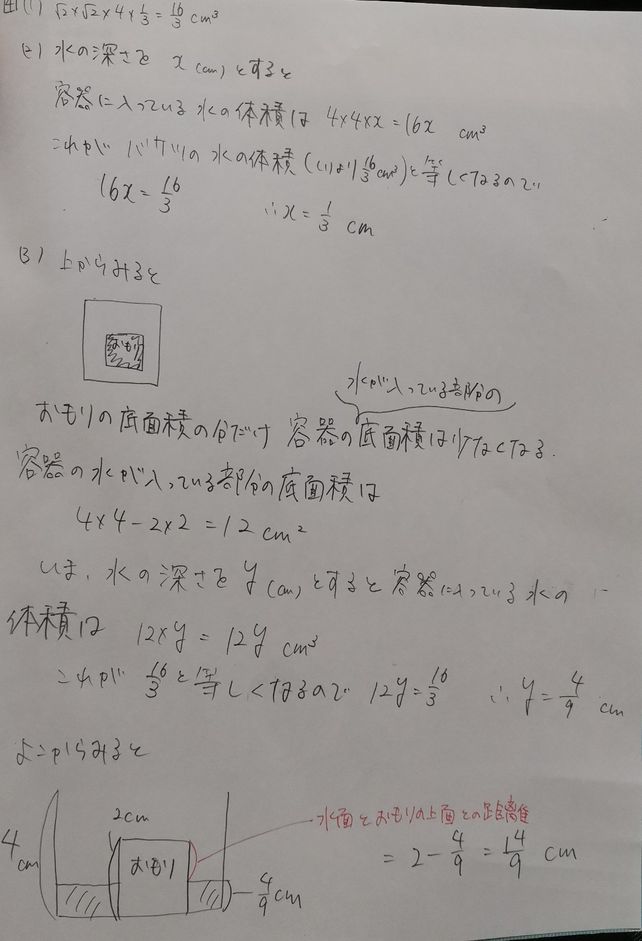 4 (1) √2×√2×4×1/3=16/3 cm³
(2) 水の深さを x(cm)とすると
容器に入っている水の体積は 4×4×x=16x cm³
これが バケツの水の体積((1)より16/3cm³)と等しくなるので
16x=16/3 ∴x=1/3 cm
(3) 上からみると
おもり
水が入っている部分の
おもりの底面積の分だけ 容器の底面積は少なくなる.
容器の水が入っている部分の底面積は
4×4-2×2=12cm²
いま、水の深さを y(cm)とすると容器に入っている水の
体積は 12×y=12y cm³
これが 16/3と等しくなるので 12y=16/3 ∴y=4/9 cm
よこからみると
2cm
水面とおもりの上面との距離
4cm
おもり
4/9cm
=2-4/9=14/9 cm